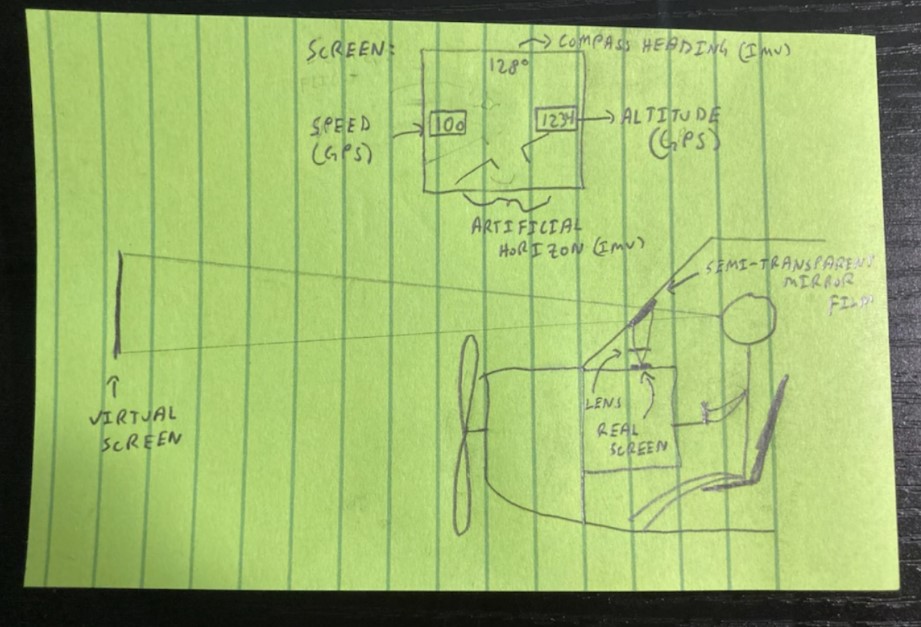 SCREEN:
COMPASS HEADING (IMU)
128°
SPEED
(GPS)
100
1234
ALTITUDE
(GPS)
ARTIFICIAL
HORIZON (IMU)
SEMI-TRANSPARENT
MIRROR
FILM
LENS
REAL
SCREEN
VIRTUAL
SCREEN